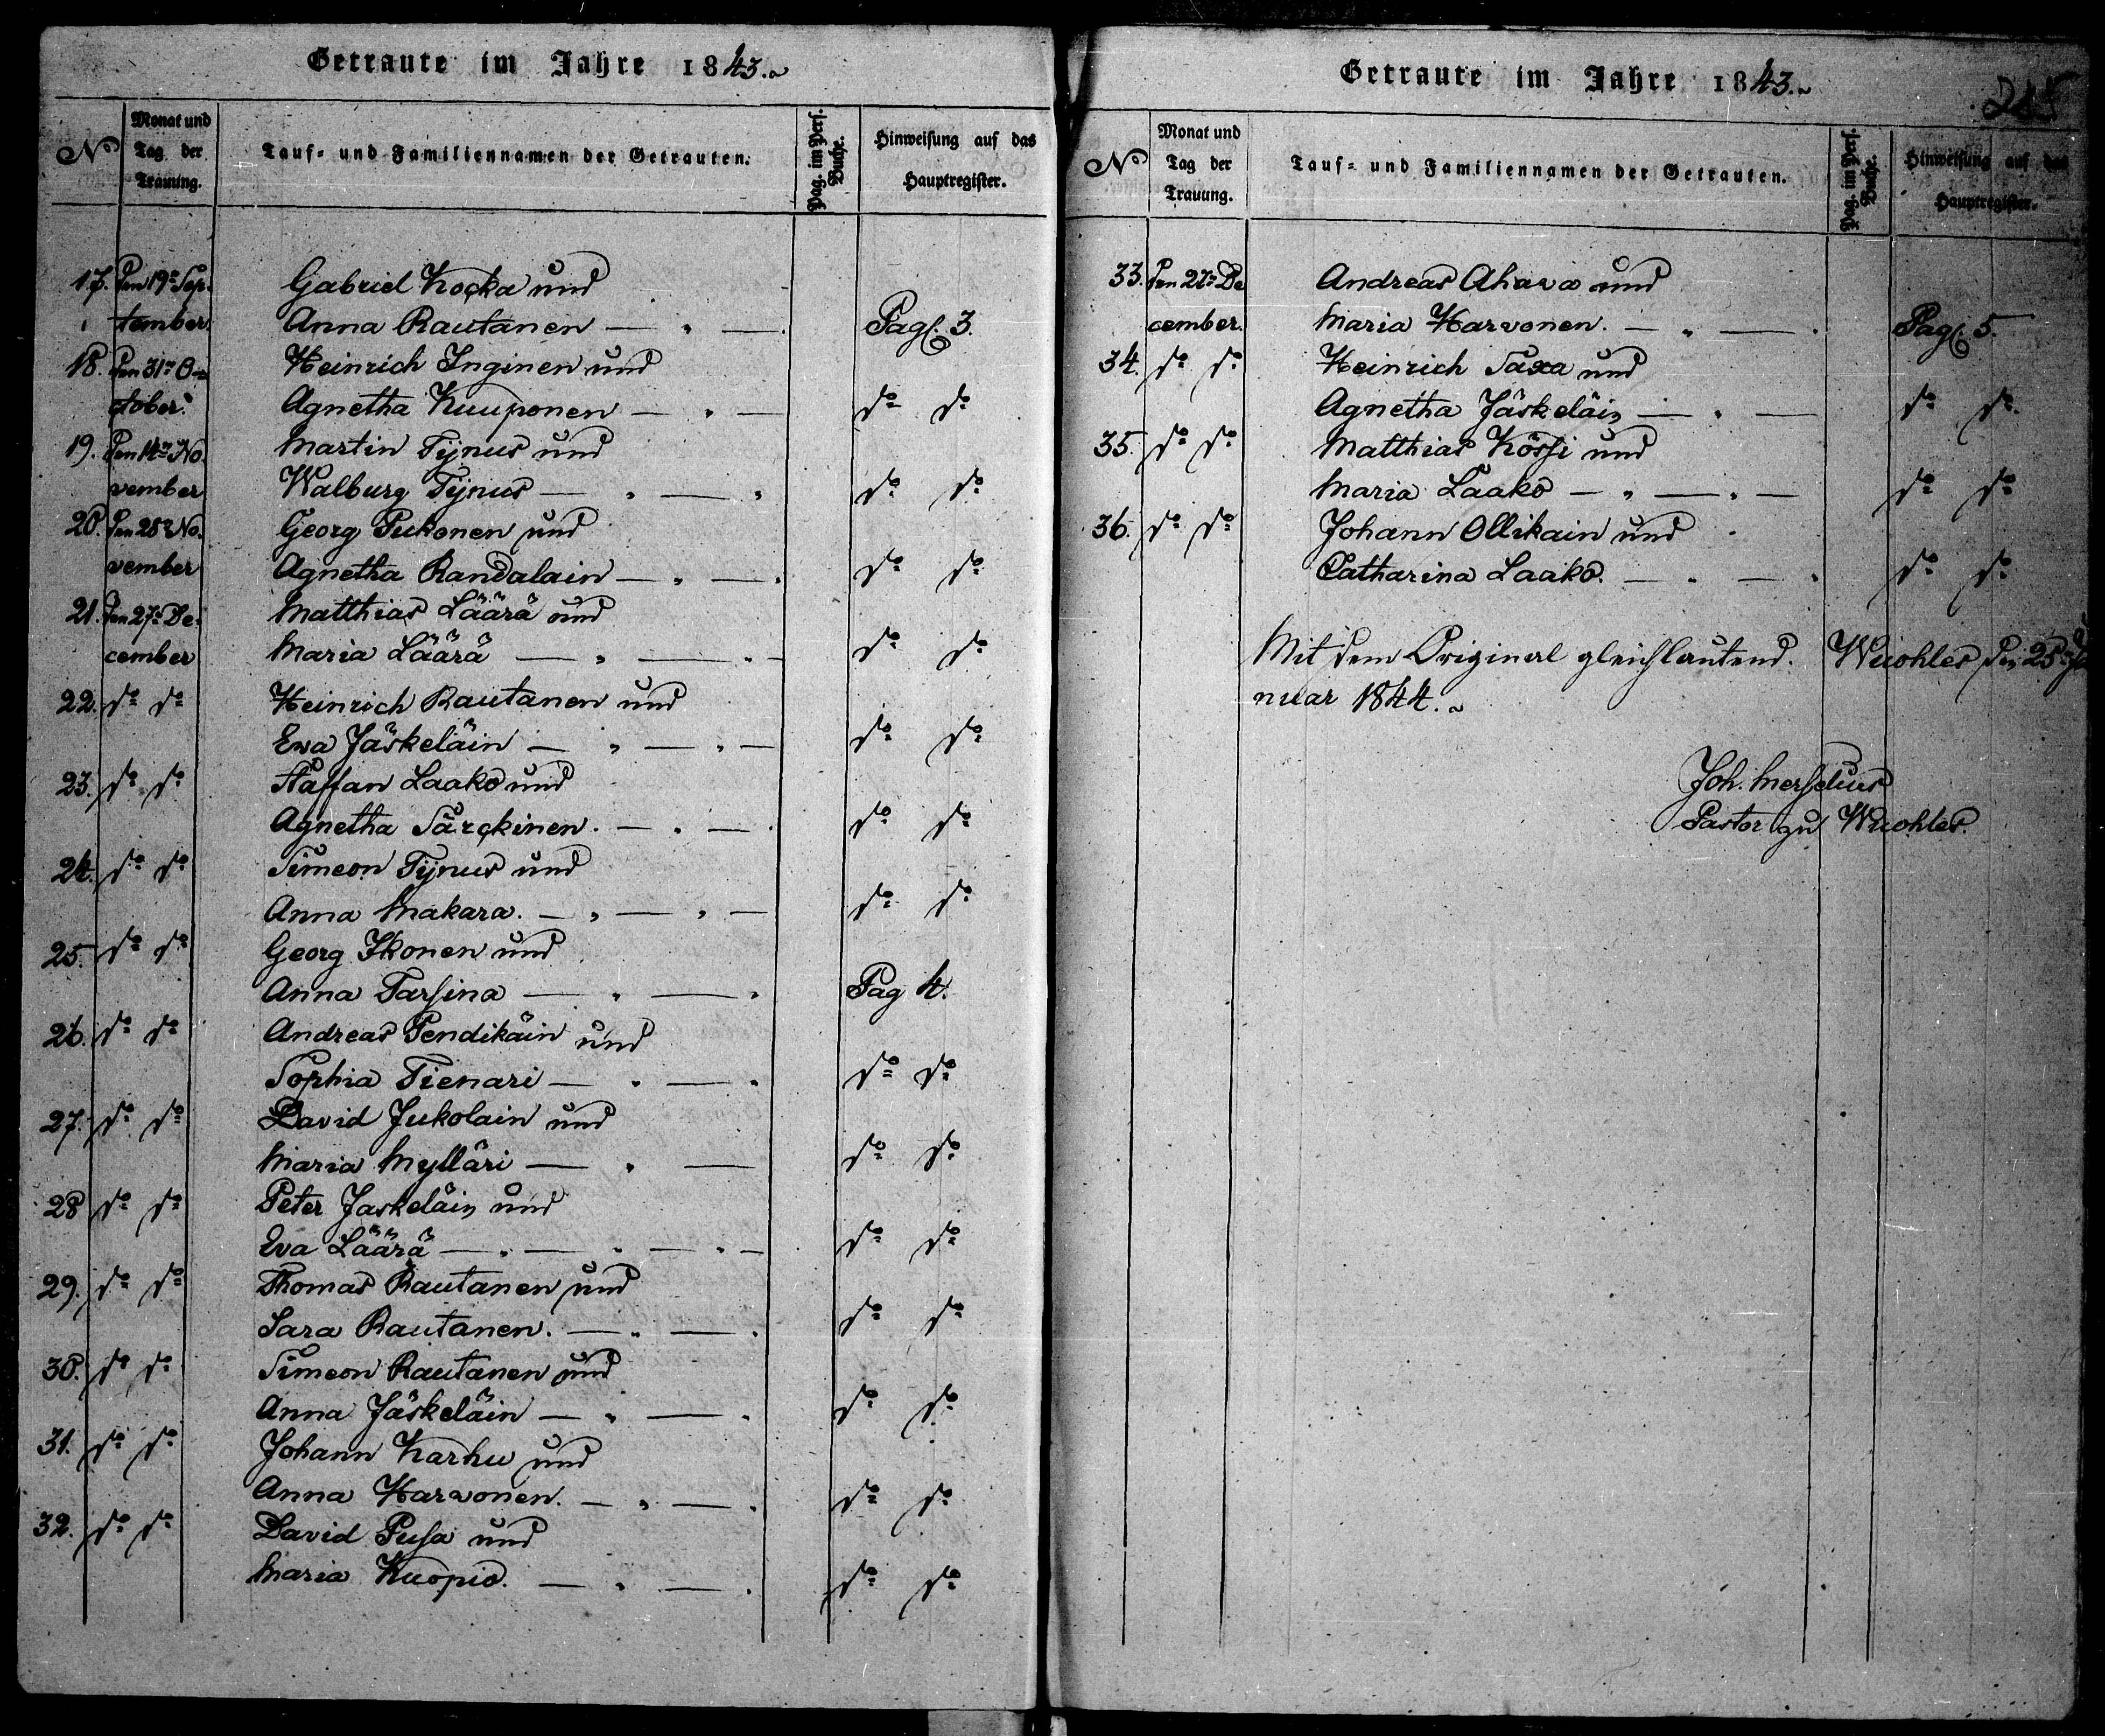 Getraute im Jahre 1843.
No
Monat und Tag der Trauung.
Tauf- und Familiennamen der Getrauten.
Pag. im Pers. Buche.
Hinweisung auf das Hauptregister.
17. Den 19n Sep- Gabriel Kocka und
tember. Anna Rautanen — " — . Pag. 3.
18. Den 31n O- Heinrich Inginen und
ctober. Agnetha Kuuponen — " — do do
19. Den 14n No- Martin Tÿnus und
vember Walburg Tÿnus — " — " do do
20. Den 28n No- Georg Pukonen und
vember Agnetha Randalain — " — . do do
21. Den 27n De- Matthias Läärä und
cember Maria Läärä — " — " — do do
22. do do Heinrich Rautanen und
Ewa Jäskeläin — " — " — do do
23. do do Staffan Laako und
Agnetha Särckinen. — " — . do do
24. do do Simeon Tÿnus und
Anna Makara. — " — " — do do
25. do do Georg Ikonen und
Anna Tarsina — " — " Pag 4.
26. do do Andreas Pendikäin und
Sophia Tienari — " — " do do
27. do do David Jukolain und
Maria Mylläri — " — do do
28 do do Peter Jaskeläin und
Eva Läärä — " — " — " — do do
29. do do Thomas Rautanen und
Sara Rautanen. — " — . do do
30. do do Simeon Rautanen und
Anna Jäskeläin — " — . do do
31. do do Johann Karhu und
Anna Harvonen. — " — . do do
32. do do David Pusa und
Maria Kuopio. — " — . do do
Getraute im Jahre 1843.
No
Monat und Tag der Trauung.
Tauf- und Familiennamen der Getrauten.
Pag. im Pers. Buche.
Hinweisung auf das Hauptregister.
33. Den 27n De Andreas Ahava und
cember. Maria Harvonen. — " — . Pag. 5.
34. do do Heinrich Saxa und
Agnetha Jäskeläin — " — do do
35. do do Matthias Kössi und
Maria Laako — " — " — do do
36. do do Johann Ollikain und
Catharina Laako. — " — . do do
Mit dem Original gleichlautend. Wuohles den 25n Ja
nuar 1844.
Pastor zu Wuohles.